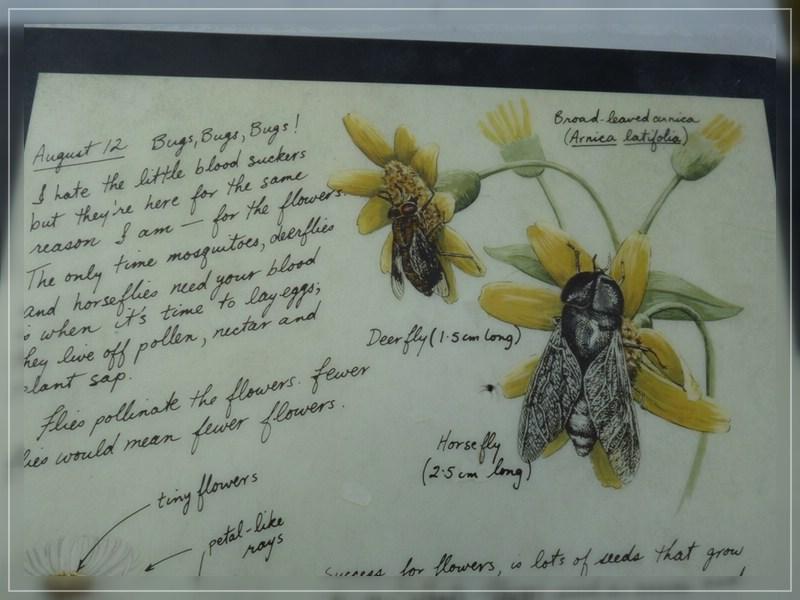 August 12 Bugs, Bugs, Bugs!
I hate the little blood suckers
but they're here for the same
reason I am — for the flowers.
The only time mosquitoes, deerflies
and horseflies need your blood
when it's time to lay eggs;
they live off pollen, nectar and
plant sap.
Flies pollinate the flowers. Fewer
flies would mean fewer flowers.
tiny flowers
petal-like
rays
Broad-leaved arnica
(Arnica latifolia)
Deerfly (1.5 cm long)
Horsefly
(2.5 cm long)
Success for flowers, is lots of seeds that grow